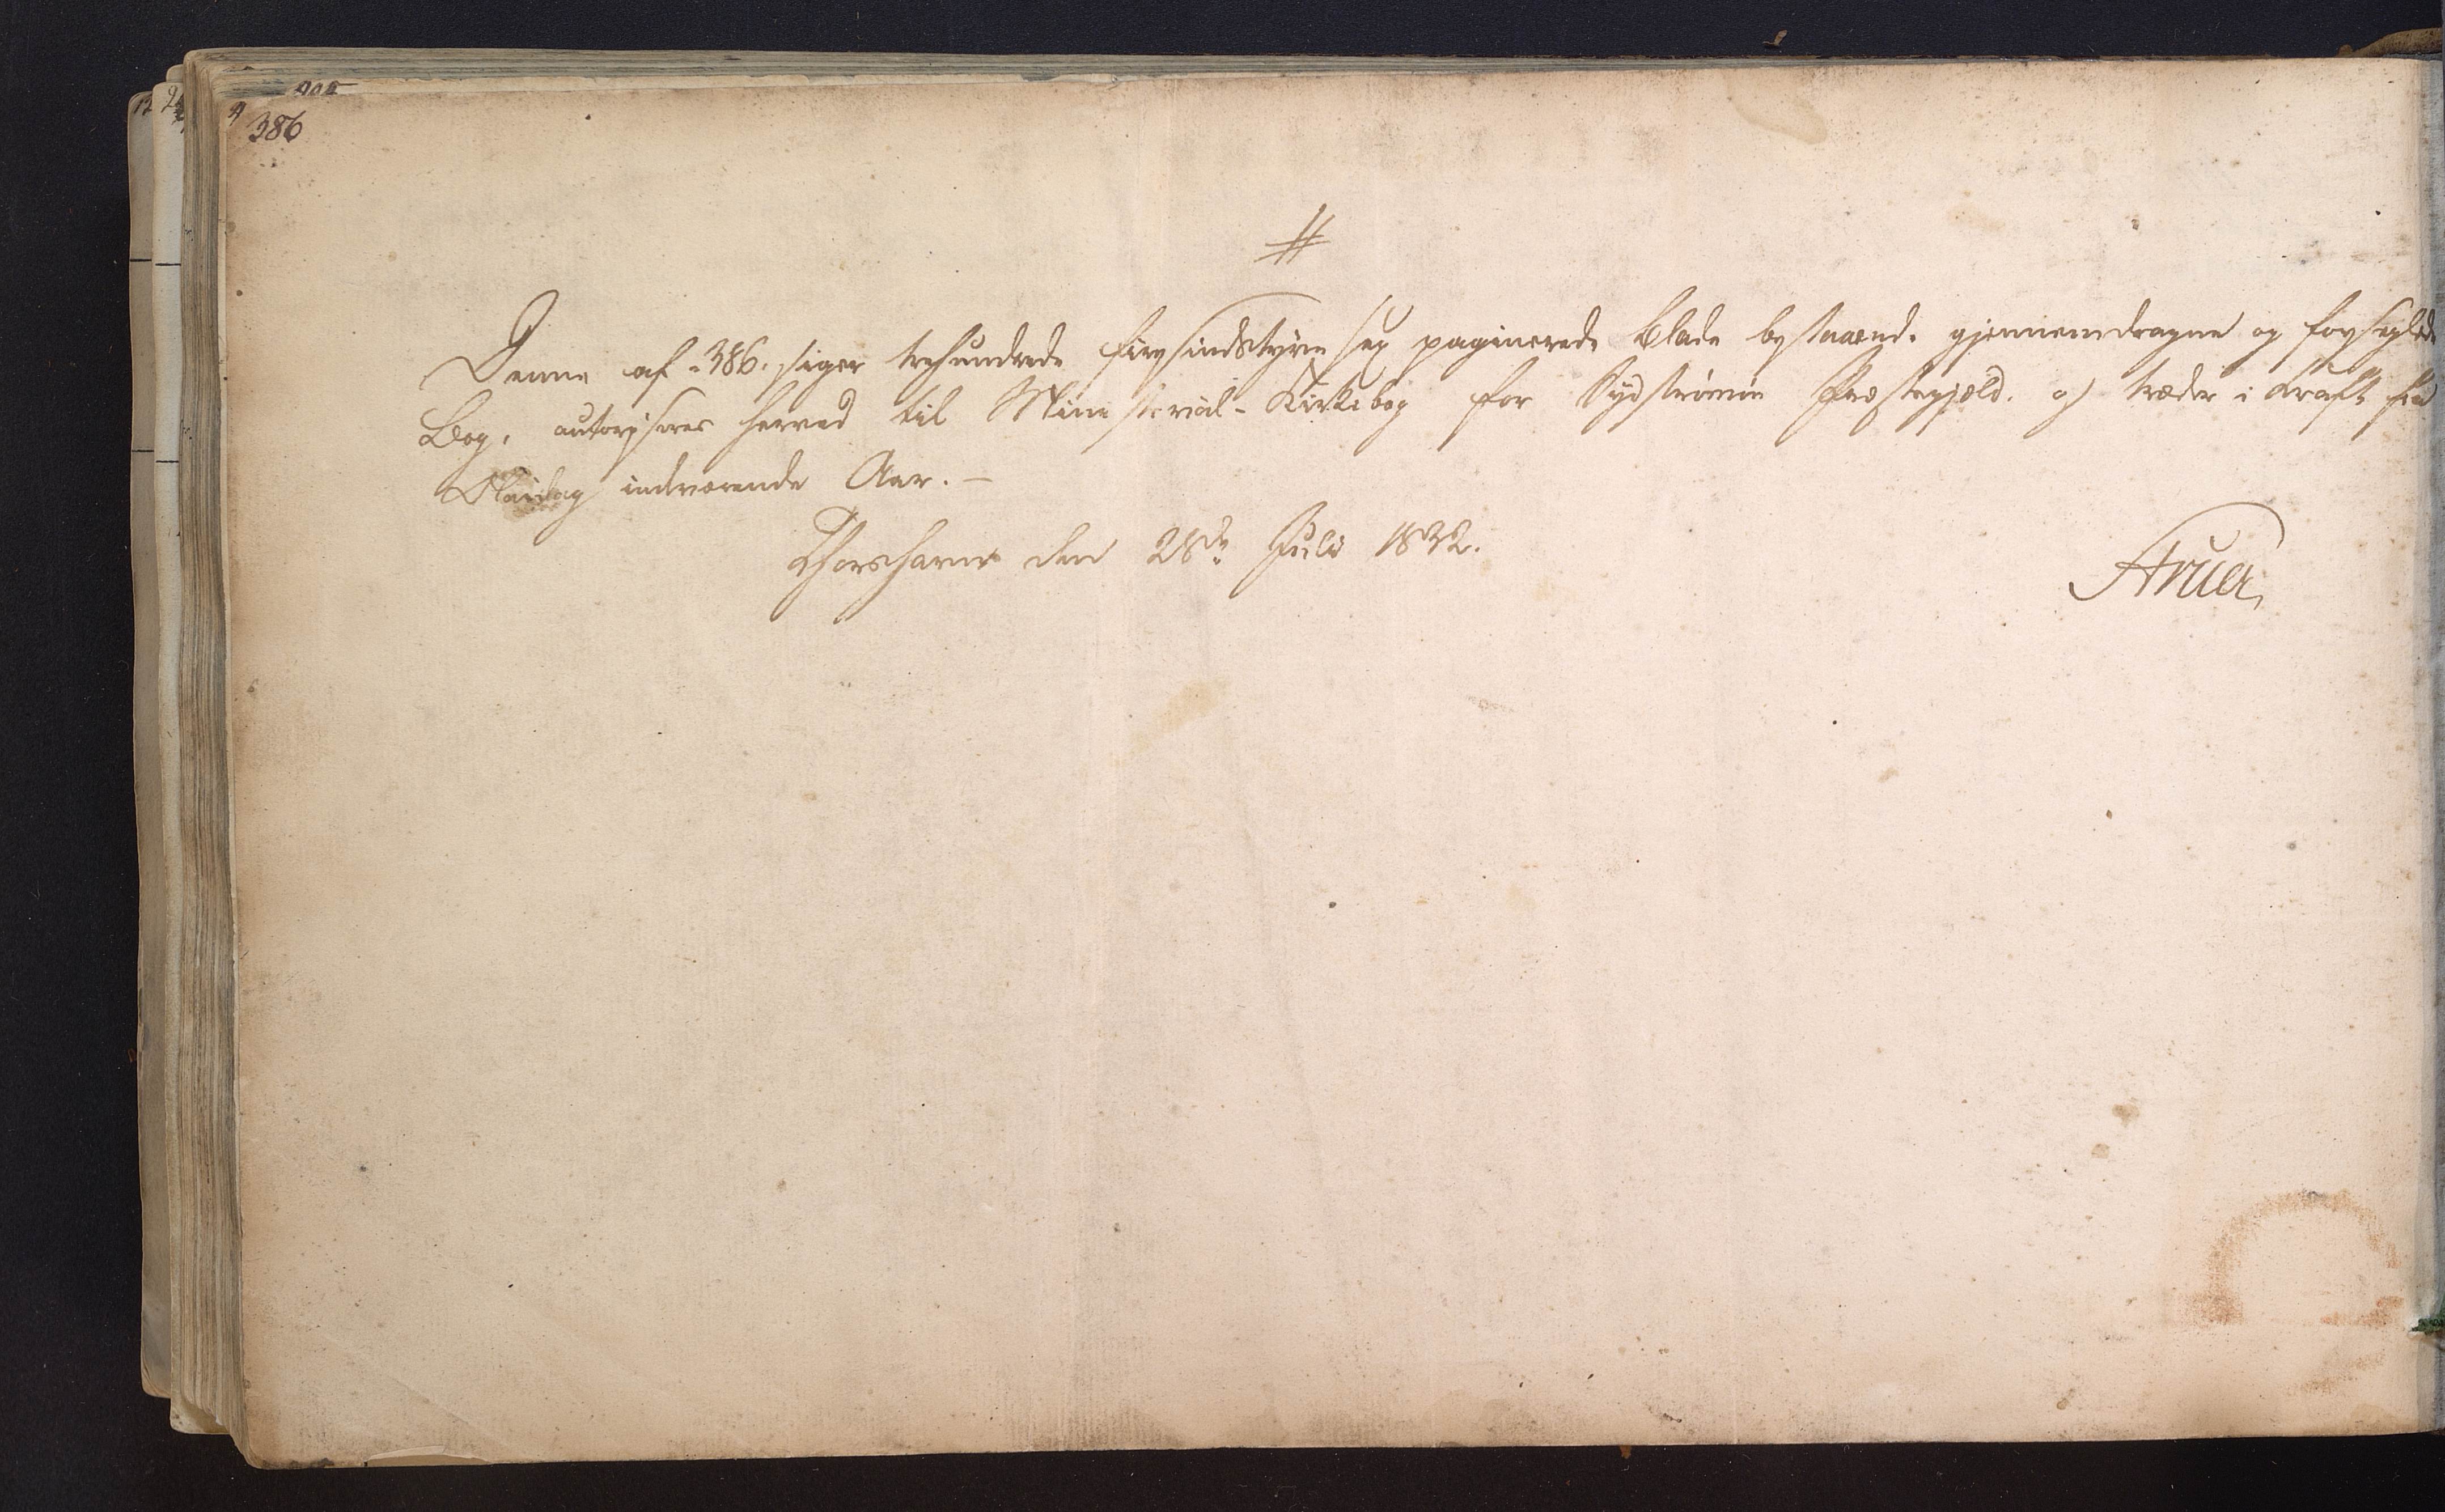 386
#
Denne af 386. siger trehundrede firesindstyve sex paginerede Blade bestaaende gjennemdragne og forseglede
Bog, autoriseres herved til Ministerial-Kirkebog for Sydstrømø Præstegjæld. og træder i Kraft fra
Maidag indeværende Aar. -
Thorshavn den 28de Juli 1832.